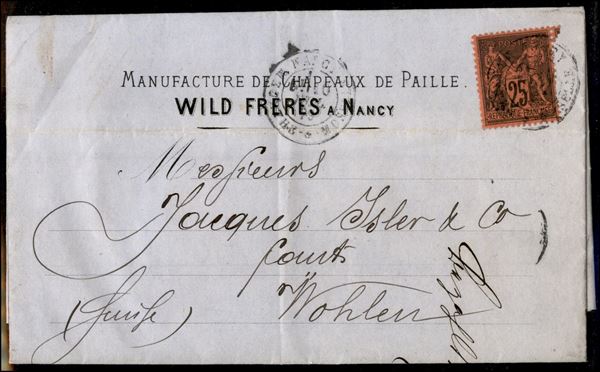 MANUFACTURE DE CHAPEAUX DE PAILLE.
WILD FRÈRES A NANCY
25
Messieurs
Jacques Isler & Co
Wohlen
(Suisse)